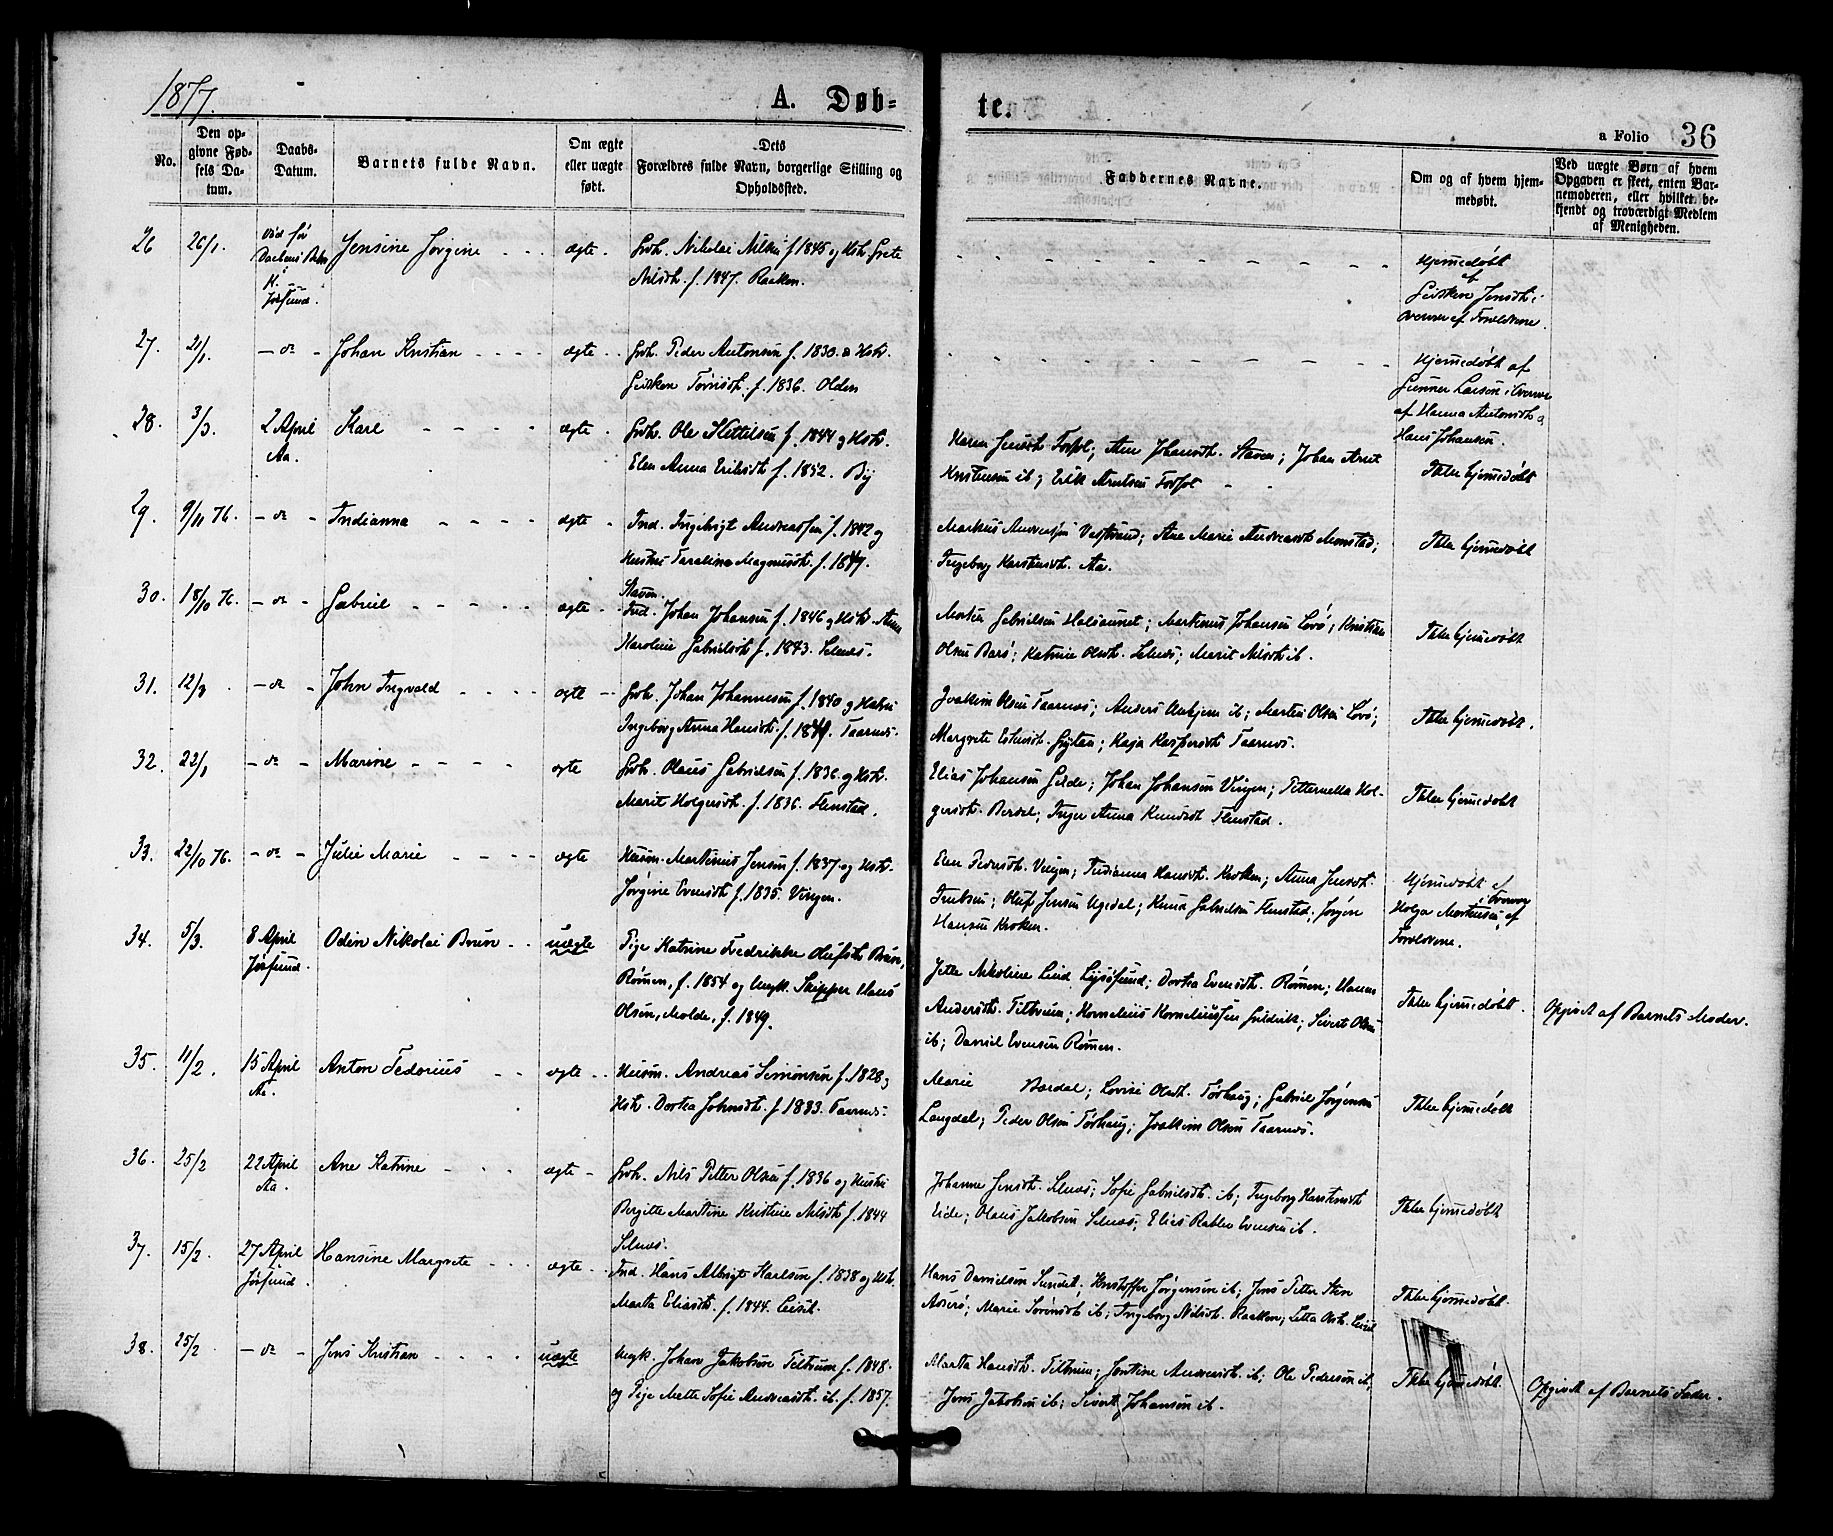 1877.
A. Døb-
te.
a Folio 36
No.
Den op-
givne Fød-
sels Da-
tum.
Daabs-
Datum.
Barnets fulde Navn.
Om ægte
eller uægte
født.
Dets
Forældres fulde Navn, borgerlige Stilling og
Opholdssted.
Faddernes Navne.
Om og af hvem hjem-
medøbt.
Ved uægte Børn af hvem
Opgaven er skeet, enten Bar-
nemoderen, eller hvilket be-
kjendt og troværdigt Medlem
af Menigheden.
26 26/1. Død før Jensine Jørgine ægte. Grdb. Nikolai Nilsen f. 1845 og Hstr. Grete
Daabens Bekr. i K. Jøssund. Nilsdt. f. 1847. Raaken.
Hjemmedøbt
af
Jensdt. i
Overvær af Forældrene.
27. 21/1. - do - Johan Kristian ægte Grdb. Peder Antonsen f. 1830. & Hstr.
f. 1836. Olden
Hjemmedøbt af
Gunner Larsen i Overvær
af Hanna Antonsdt. og
Hans Johansen.
28. 3/3. 2 April Karl ægte. Grdb. Ole Kettilsen f. 1844 og Hstr.
Aa. Elen Anna Eriksdt f. 1852. By
Karen Jensdt. Forfot; Ane Johansdt. Staven; Johan Arnt
Kristensen ib; Erik Arntsen Forfot
Ikke hjemmedøbt
29. 9/11 76. - do - Indianna ægte Ind. Ingebrigt Andreassen f. 1842 og
Hustru Paraline Magnusdt. f. 1849.
Staven.
Markus Andersen Vestrand; Ane Marie Andreasdt. Monstad;
Ingeborg Karstensdt. Aa.
Ikke hjemmedøbt
30. 18/10 76. - do - Gabriel ægte Ind. Johan Johansen f. 1846 og Hstr. Anna
Karoline Gabrielsdt f. 1843. Selnæs.
Morten Gabrielsen Halsaunet; Martinus Johansen Lovø; Kristian
Olsen Barø; Katrine Olsdt. Selnæs; Marit Nilsdt ib.
Ikke hjemmedøbt
31. 12/3 - do - John Ingvald ægte Grdb. Johan Johannesen f. 1840 og Hustru
Ingeborg Anna Hansdt. f. 1849. Taarnes.
Joakim Olsen Taarnes; Anders ib; Martin Olsen Lovø;
Margrete Estensdt. Grytan; Kaja Kaspersdt. Taarnes.
Ikke hjemmedøbt.
32. 22/1 - do - Marine ægte Grdb. Olaus Gabrielsen f. 1836 og Hstr.
Marit Holgersdt. f. 1836. Flenstad.
Elias Johansen Gilde; Johan Johansen Vingen; Petternella Hol-
gersdt. Berdal; Inger Anna Knudsdt. Flenstad.
Ikke hjemmedøbt
33. 22/10 76. - do - Julie Marie ægte Husm. Martinus Jensen f. 1837 og Hstr.
Jørgine Evensdt f. 1835. Vingen.
Elen Pedersdt. Vingen; Indianna Hansdt. Kroken; Anna Jensdt.
Oluf Jensen Ugedal; Gabrielsen Flenstad; Jørgen
Hansen Kroken.
Hjemmedøbt af
Holga Mortensen i Overvær af
Forældrene.
34. 5/3. 8 April Odin Nikolai Brun uægte Pige Katrine Fredrikke Olufsdt Brun,
Jøssund. Rømen, f. 1854 og Ungk. Skipper Hans
Olsen, Molde, f. 1849.
Jette Nikoline Lund Lysøsund; Dortea Evensdt. Rømen; Hanna
Andersdt. Teltrum; Kornelius Korneliussen; Sivert Olsen
ib; Daniel Evensen Rømen.
Ikke hjemmedøbt.
Opgivet af Barnets Moder.
35. 11/2. 15 April Anton Pedorius ægte Husm. Andreas Simonsen f. 1828 og
Aa. Hstr. Dortea Johnsdt. f. 1833. Taarnes.
Marie Bardal; Lovise Olsdt. Tørhaug; Gabriel Jørgensen
Langdal; Peder Olsen Tørhaug; Joakim Olsen Taarnes.
Ikke hjemmedøbt
36. 25/2 22 April Ane Katrine ægte Grdb. Nils Petter Olsen f. 1836 og Hustru
Aa. Birgitte Martine Kristine Nilsdt. f. 1844
Selnæs.
Johanna Jensdt. Selnæs; Sofie Gabrielsdt. ib; Ingeborg Karstensdt.
Eide; Olaus Jakobsen Selnæs; Elias Rabbe Evensen ib.
Ikke hjemmedøbt
37. 15/2. 27 April Hansine Margrete ægte Ind. Hans Albrigt Karlsen f. 1838 og Hstr.
Jøssund. Marta Eliasdt. f. 1844. Leisit.
Hans Danielsen Sundet; Kristoffer Jørgensen ib; Jens Petter Sten
Asserø; Marie Sørensdt ib; Ingeborg Nilsdt. Raaken; Letta Olsdt.
Ikke hjemmedøbt.
38. 25/2 - do - Jens Kristian uægte Ungk. Johan Jakobsen Teltrum f. 1848.
og Pige Mette Sofie Andreasdt. ib. f. 1857.
Marta Hansdt. Teltrum; Jentine Andersdt. ib; Ole Pedersen ib;
Jens Jakobsen ib; Sivert Johansen ib.
Ikke hjemmedøbt.
Opgivet af Barnets Fader.